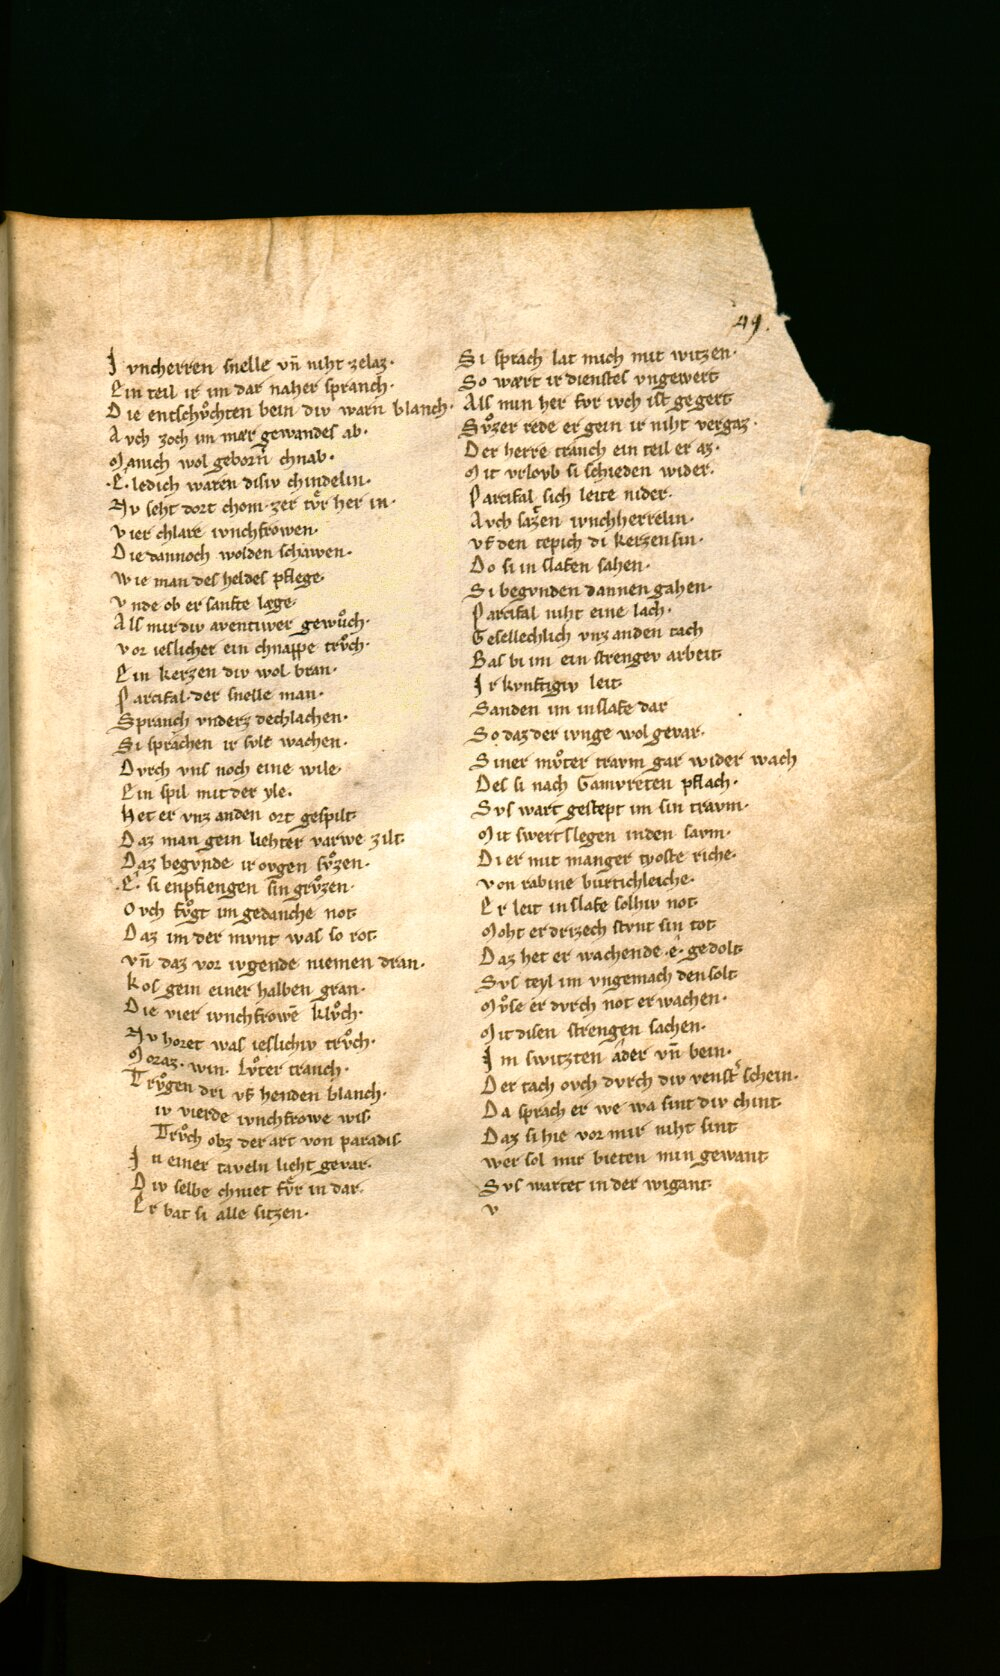 49.
J vncherren snelle vn̄ niht zelaz·
Ein teil ir im dar naher spranch·
Die entschůchten bein div warn blanch·
Avch zoch im mær gewandes ab·
Manich wol geborn̄ chnab·
·E· ledich waren disiv chindelin·
Nv seht dort chom zer tv̊r her in·
Vier chlare ivnchfrowen·
Die dannoch wolden schawen·
Wie man des heldes pflege·
Vnde ob er sanfte læge·
Als mir div aventiwer gewůch·
Vor ieslicher ein chnappe trv̊ch·
Ein kerzen div wol bran·
Parcifal der snelle man·
Spranch vnderz dechlachen·
Si sprachen ir svlt wachen·
Dvrch vns noch eine wile·
Ein spil mit der yle·
Het er vnz anden ort gespilt·
Daz man gein liehter varwe zilt·
Daz begvnde ir ovgen sv̊zen·
·E· si enpfiengen sin grv̊zen·
Ovch fv̊gt im gedanche not·
Daz im der mvnt was so rot·
Vn̄ daz vor ivgende niemen dran·
Kos gein einer halben gran·
Die vier ivnchfrowē klv̊ch·
Nv horet was ieslichiv trv̊ch·
Moraz· win· lv̊ter tranch·
Trv̊gen dri vf henden blanch·
iv vierde ivnchfrowe wis·
Trv̊ch obz der art von paradis·
Jn einer taveln lieht gevar·
Div selbe chniet fv̊r in dar·
Er bat si alle sitzen·
Si sprach lat mich mit witzen·
So wært ir dienstes vngewert
Als min her fvr ivch ist gegert
Sv̊zer rede er gein ir niht vergaz·
Der herre tranch ein teil er az·
Mit vrlovb si schieden wider·
Parcifal sich leite nider·
Avch sazen ivnchherrelin·
Vf den tepich di kerzen sin·
Do si in slafen sahen·
Si begvnden dannen gahen·
Parcifal niht eine lach·
Gesellechlich vnz anden tach
Bas bi im ein strengev arbeit
Jr kvnftigiv leit
Sanden im in slafe dar
So daz der ivnge wol gevar·
Siner mv̊ter travm gar wider wach
Des si nach Gamvreten pflach·
Svs wart gestept im sin travm·
Mit swertslegen inden savm·
Di er mit manger tyoste riche·
Von rabine burtichleiche·
Er leit in slafe solhiv not
Moht er drizech stvnt sin tot
Daz het er wachende ·e· gedolt
Svs teyl im vngemach den solt
Mv̊se er dvrch not erwachen·
Mit disen strengen sachen·
Jm switzten ader vn̄ bein·
Der tach ovch dvrch div venstˀ schein·
Da sprach er we wa sint div chint
Daz si hie vor mir niht sint
Wer sol mir bieten min gewant
Svs wartet in der wigant
v